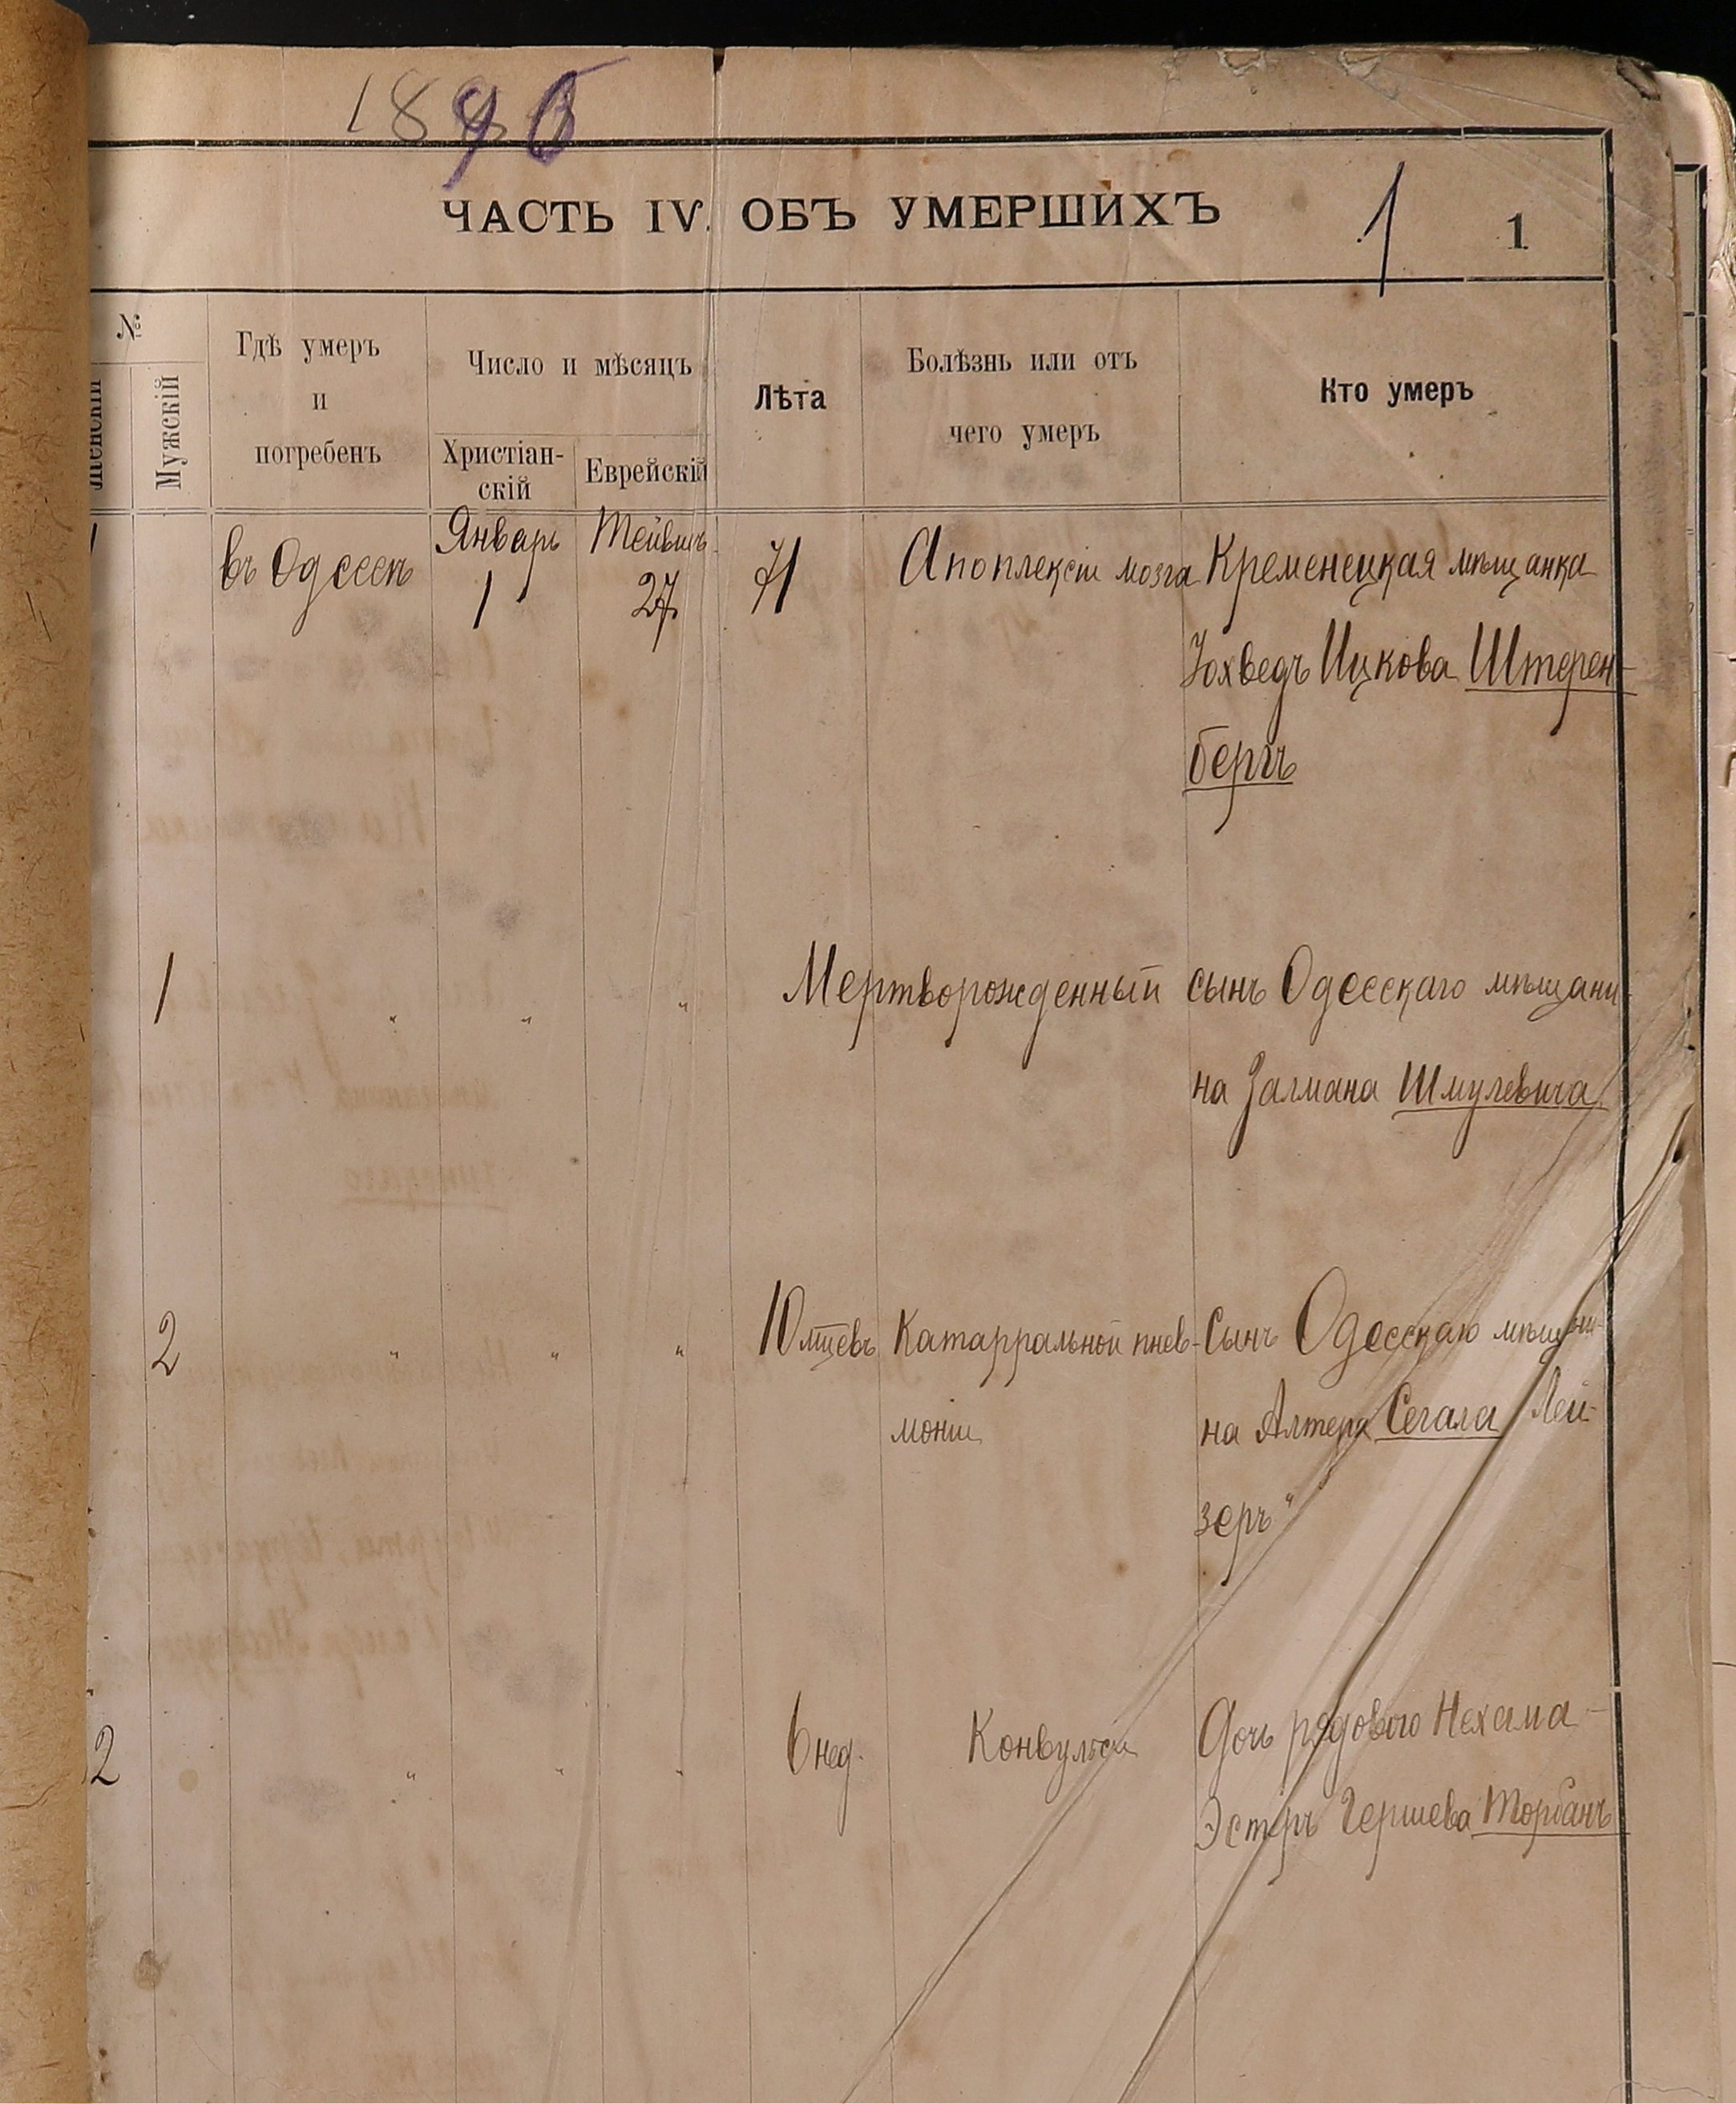 1896
ЧАСТЬ IV. ОБЪ УМЕРШИХЪ 1 1
№
Женскій
Мужскій
Гдѣ умеръ
и
погребенъ
Число и мѣсяцъ
Христіан-
скій
Еврейскій
Лѣта
Болѣзнь или отъ
чего умеръ
Кто умеръ
1 въ Одессѣ Январь 1 Тейвисъ 27 71 Апоплексіи мозга Кременецкая мѣщанка
Юхведъ Ицкова Штерен-
бергъ
1 " " " Мертворожденный сынъ Одесскаго мѣщани-
на Залмана Шмулевича
2 " " " 10 мцевъ Катарральной пнев- Сынъ Одесскаго мѣщани-
моніи на Алтера Сегала "Лей-
зеръ"
2 " " " 6 нед. Конвульсіи Дочь рядового Нехама-
Эстеръ Гершева Торбанъ